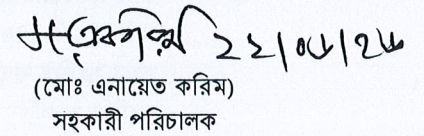 ২২/০৮/২৬
(মোঃ এনায়েত করিম)
সহকারী পরিচালক